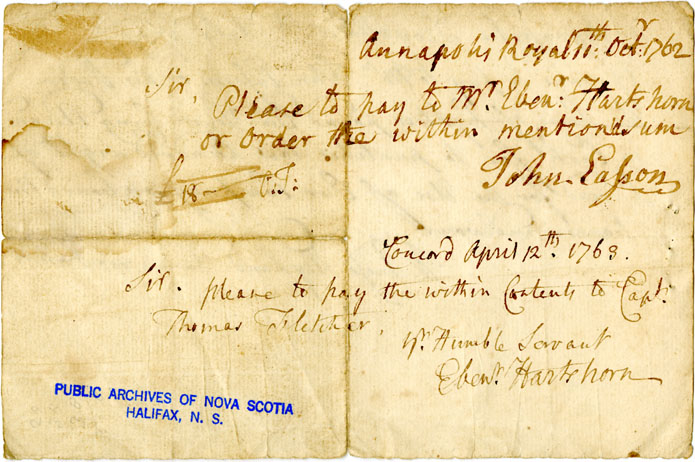 Annapolis Royal 11th. Octr. 1762
Sir,
Please to pay to Mr. Ebenr. Hartshorn
or Order the within mention'd sum
John Easson
£18-
Concord April 12th. 1763.
Sir. please to pay the within Contents to Capt.
Thomas Fletcher,
yr. Humble Servant
Ebenr. Hartshorn
PUBLIC ARCHIVES OF NOVA SCOTIA
HALIFAX, N. S.